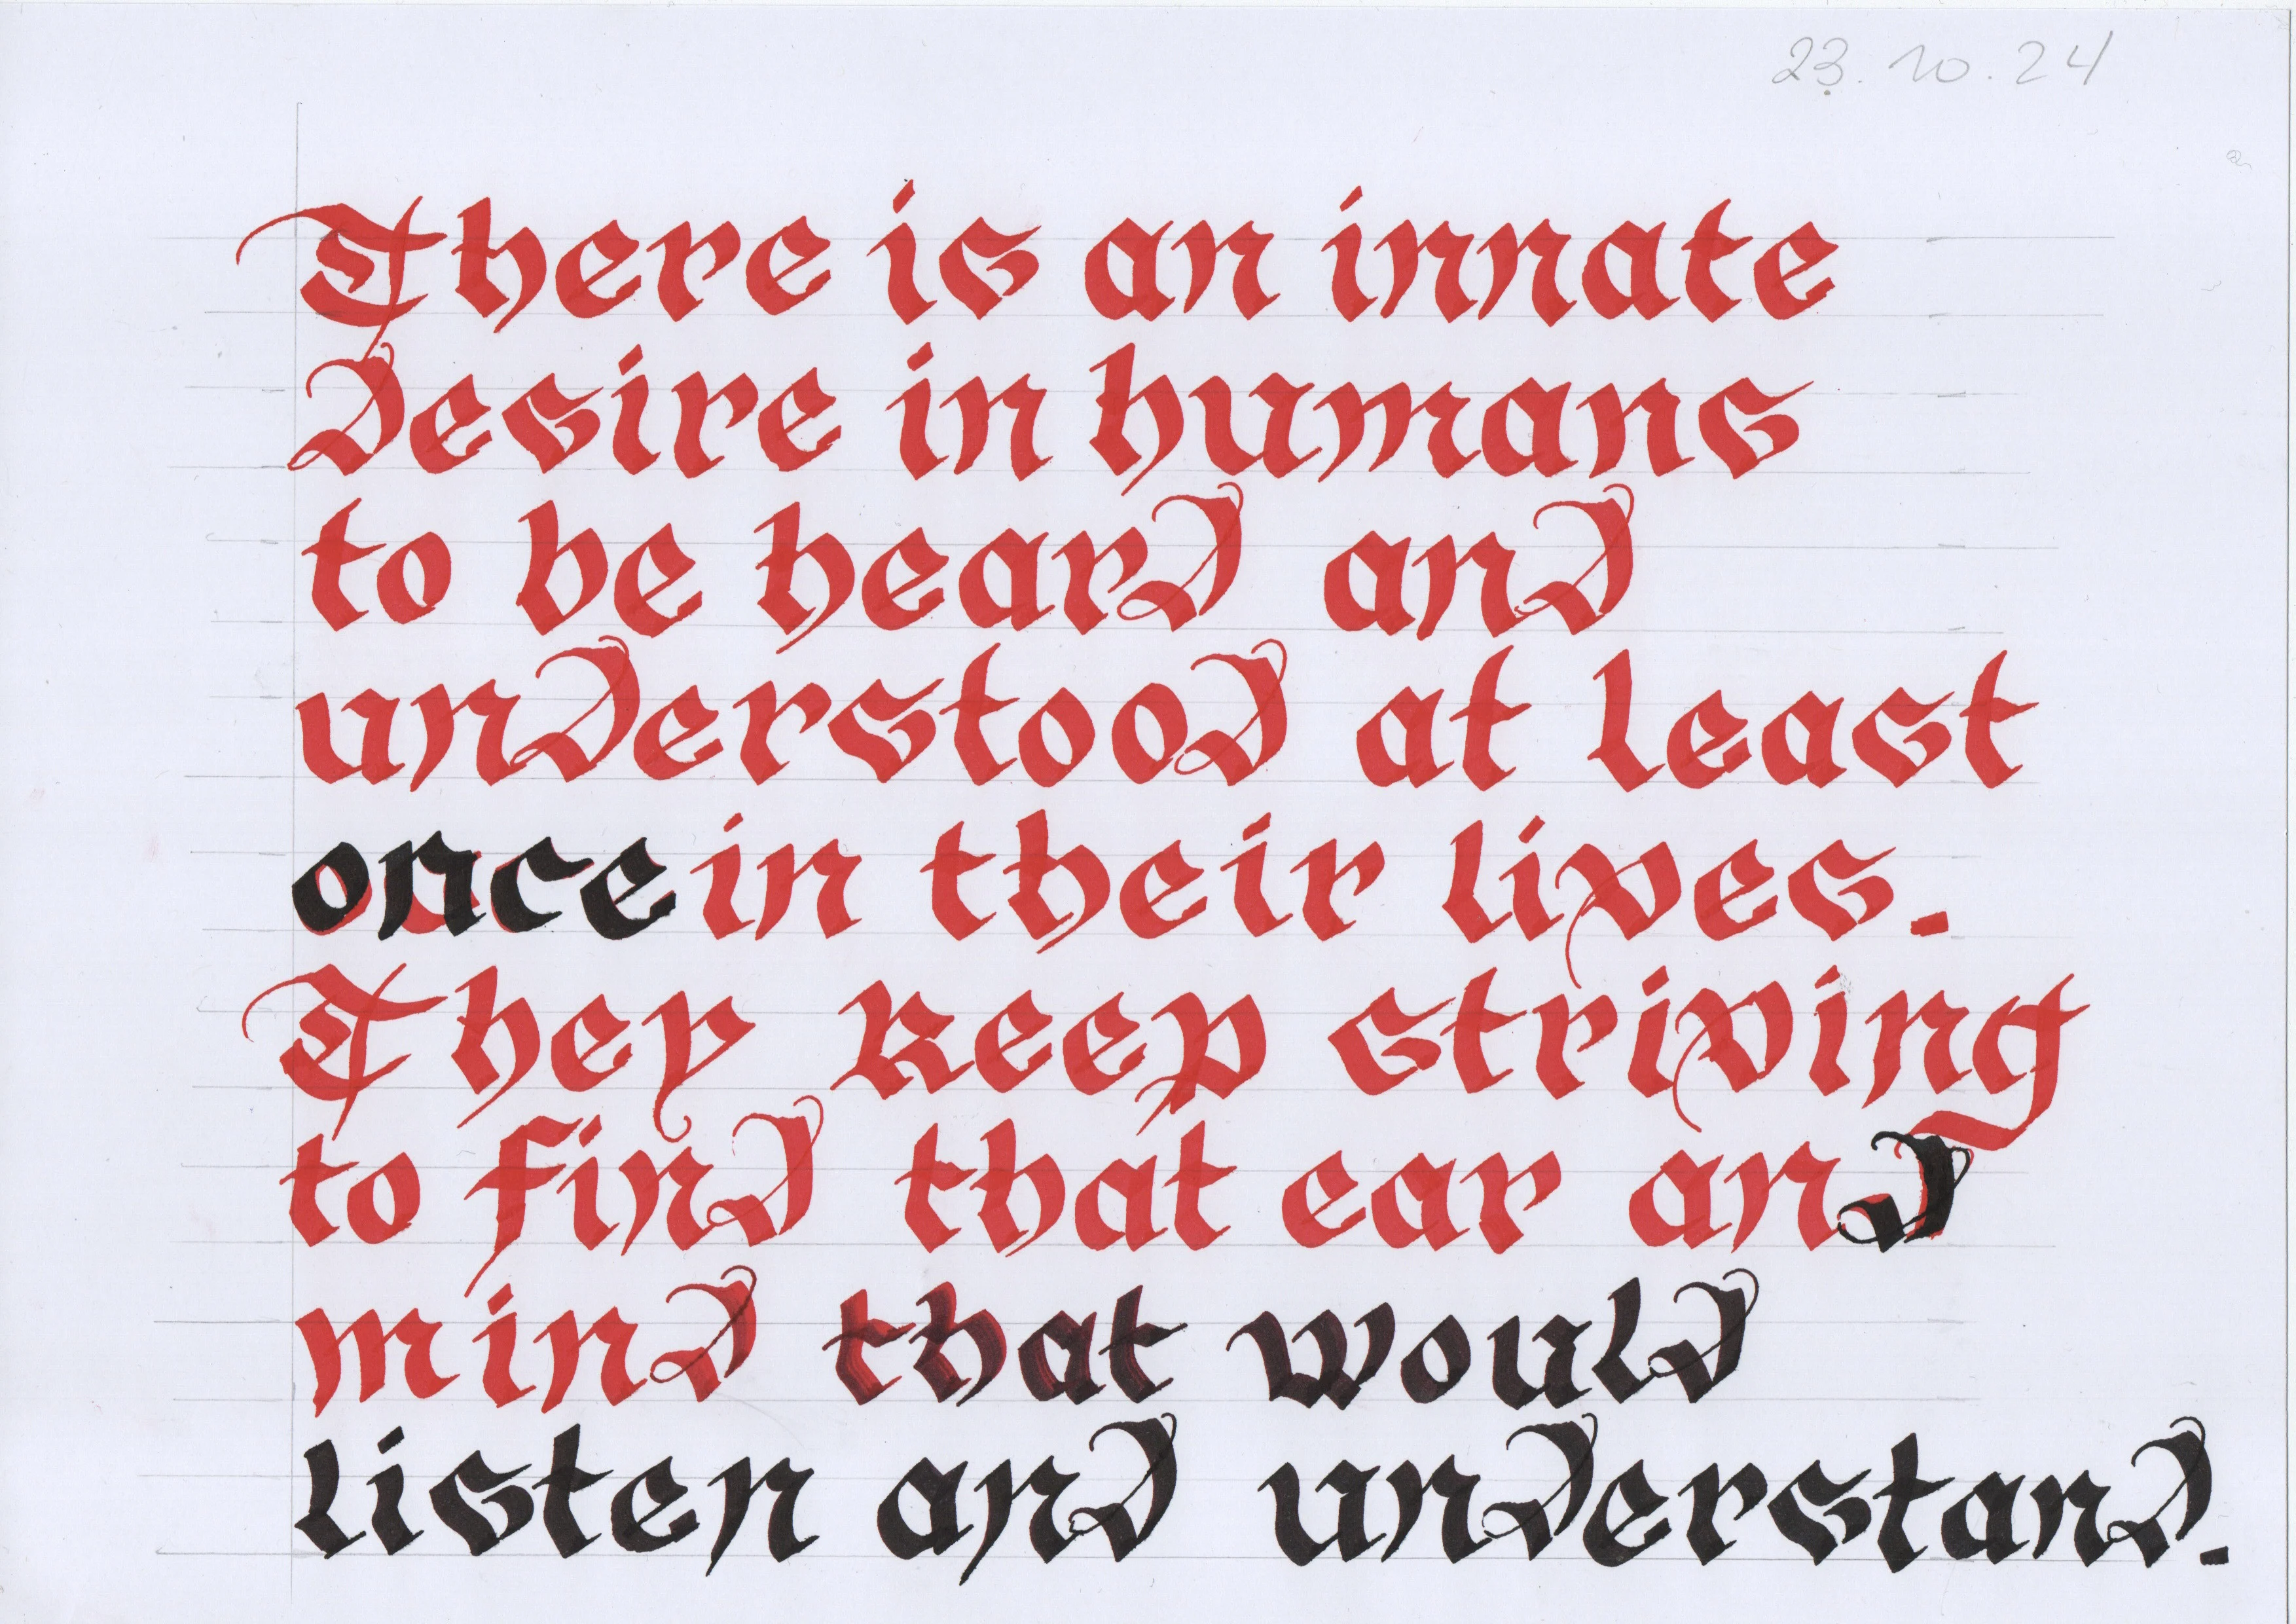 23.10.24
There is an innate
desire in humans
to be heard and
understood at least
once in their lives.
They keep striving
to find that ear and
mind that would
listen and understand.